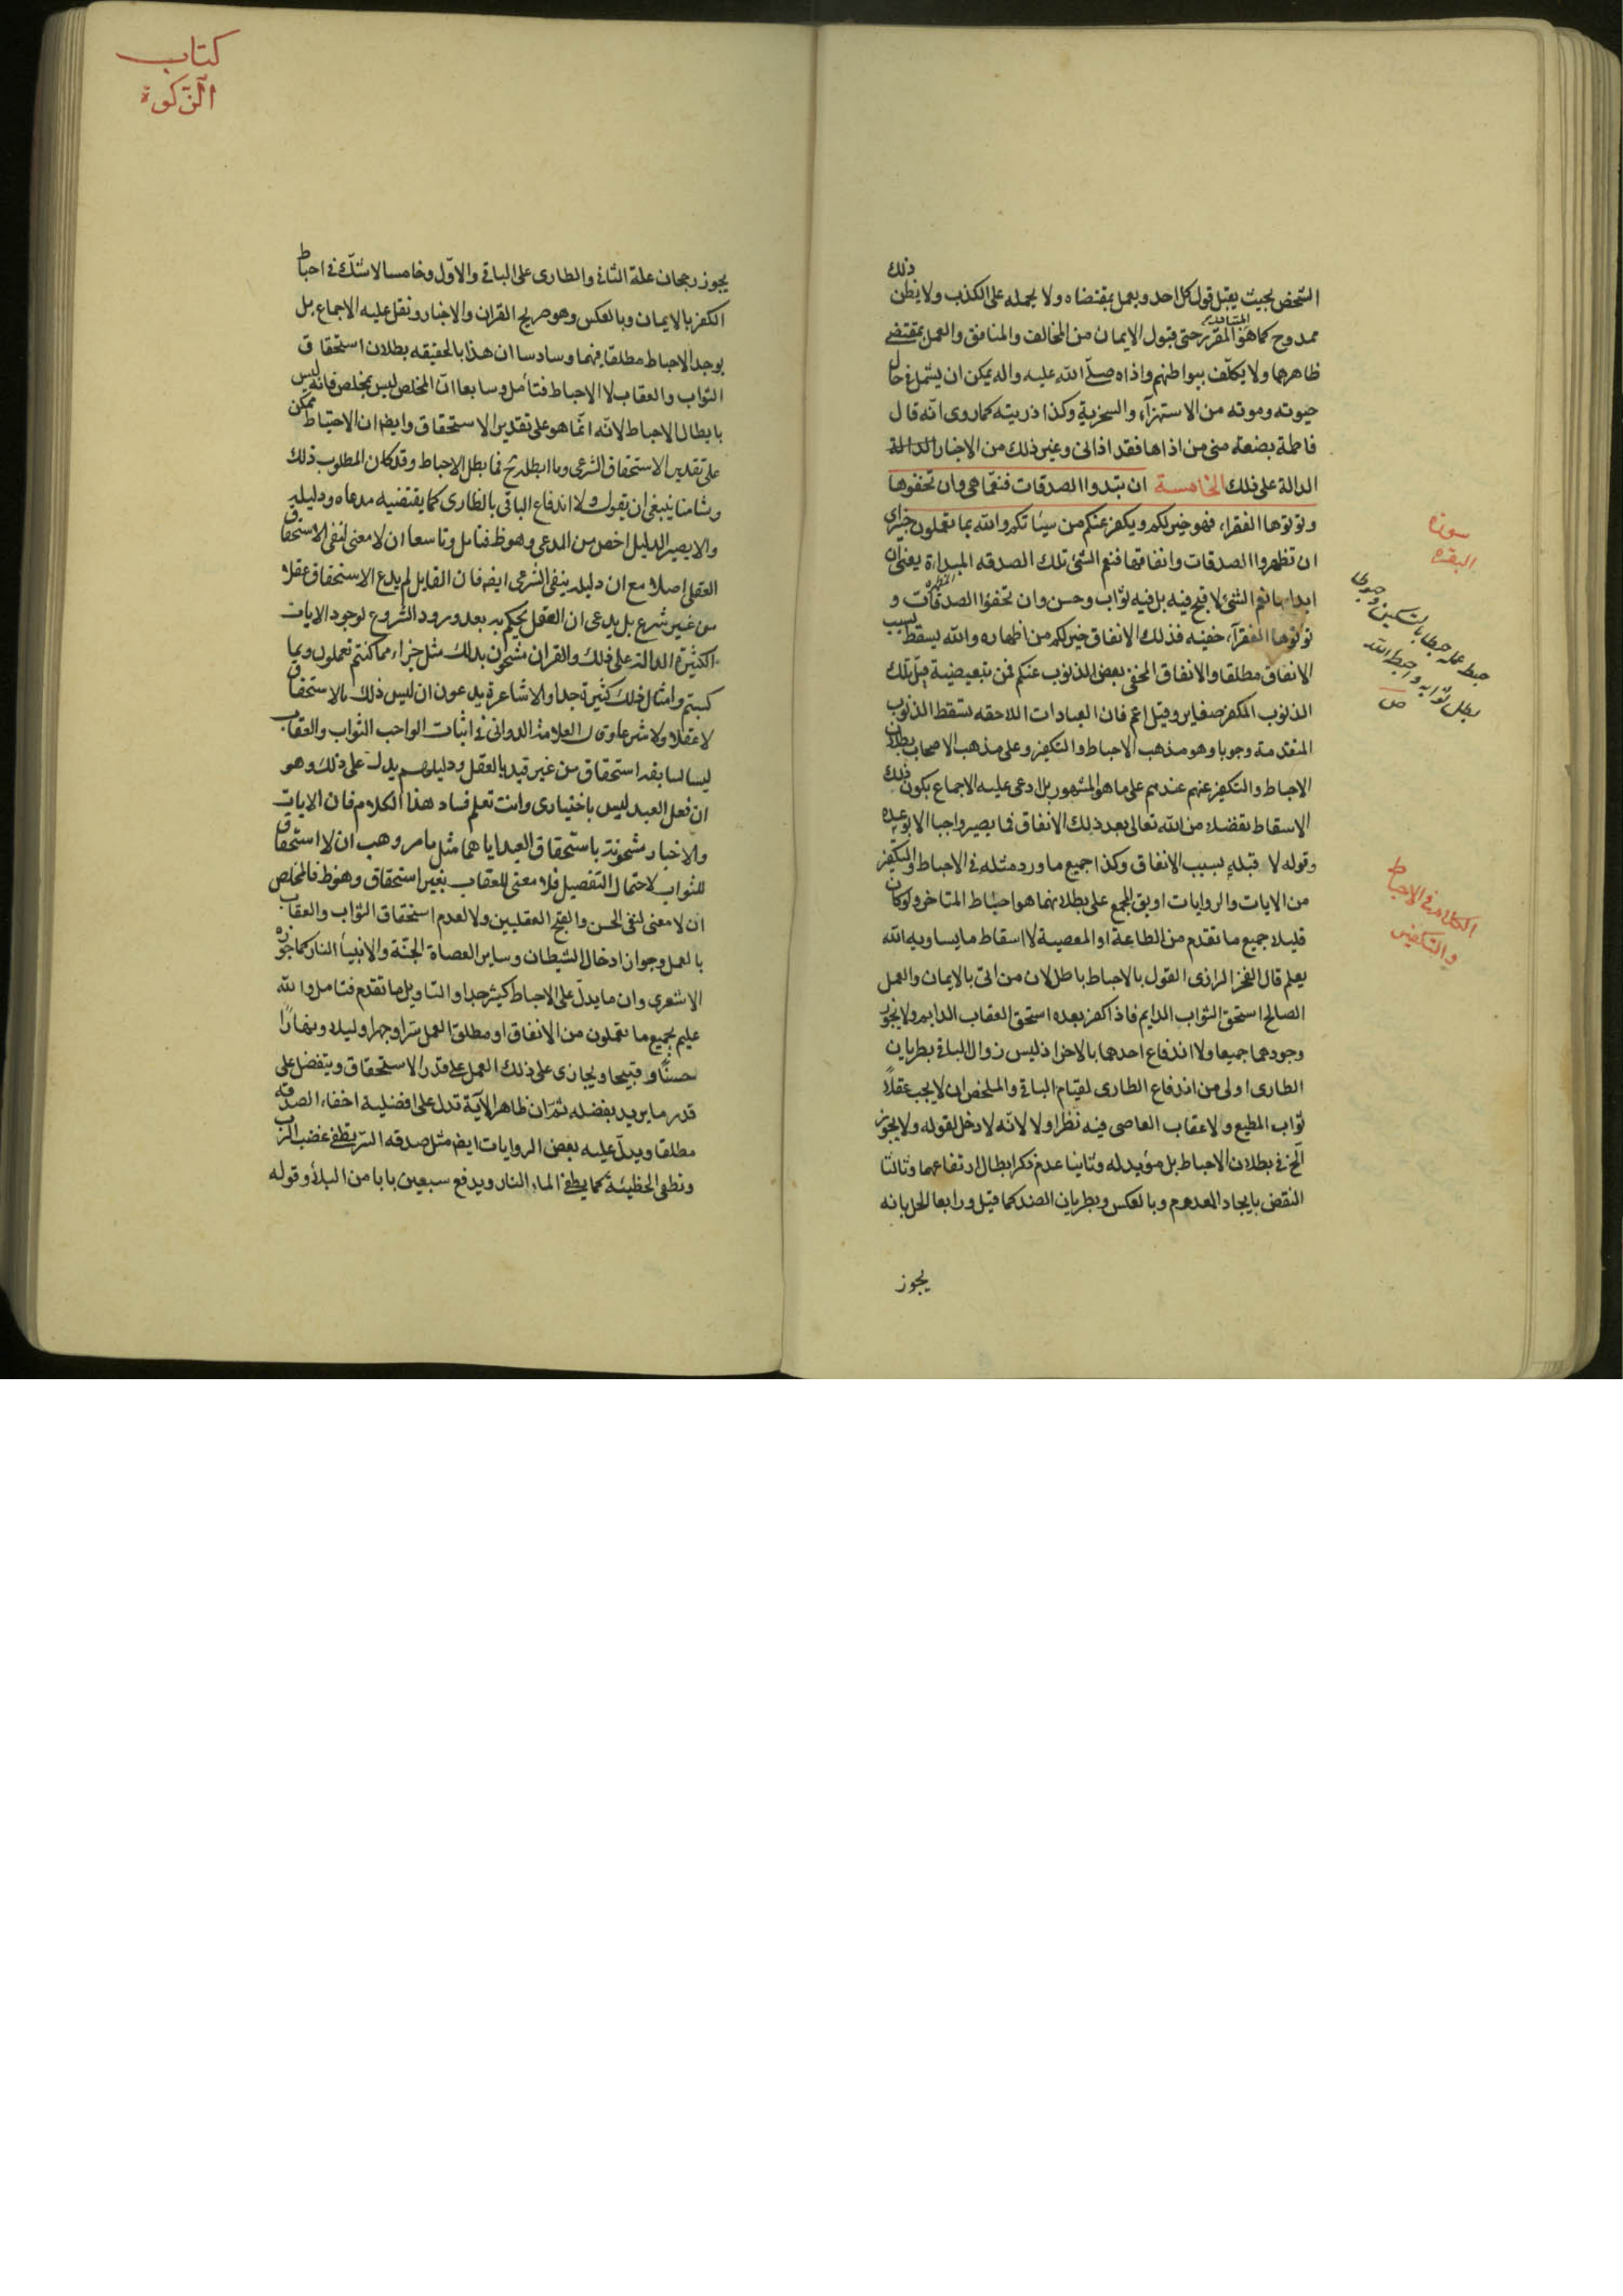 الشخص بحيث يقبل قول كل احد ويعمل بمقتضاه ولا يحمله على الكذب ولا يظن ذلك
ممدوح كما هو المقرر حتى قبول الايمان من المخالف والمنافق والعمل بمقتضى
ظاهرها ولا يكلف ببواطنهم واذاه صلّى الله عليه واله يمكن ان يشتمل في حال
حيوته وموته من الاستهزآء والسخرية وكذا ذريته كما روى انّه قال
فاطمة بضعة منى من اذاها فقد اذانى وغير ذلك من الاخبار الدالة
الدالة على ذلك الخامسة ان تبدوا الصدقات فنعمّا هى وان تخفوها
وتؤتوها الفقراء فهو خير لكم ويكفر عنكم من سيئاتكم والله بما تعملون خبير اى
ان تظهروا الصدقات وانفاقها فنعم الشئ تلك الصدقه المبداة يعنى ان
ابداءها نعم الشئ لا قبح فيه بل فيه ثواب وحسن وان تخفوا الصدقات و
تؤتوها الفقرآء خفية فذلك الانفاق خير لكم من اظهاره والله يسقط بسبب
الانفاق مطلقا والانفاق المخفى بعض الذنوب عنكم فمن تبعيضية قيل تلك
الذنوب المكفر صغاير وقيل اعم فان العبادات اللاحقه تسقط الذنوب
المتقدمة وجوبا وهو مذهب الاحباط والتكفير وعلى مذهب الاصحاب بطلان
الاحباط والتكفير عنهم عندهم على ما هو المشهور بل ادعى عليه الاجماع يكون ذلك
الاسقاط تفضلا من الله تعالى بعد ذلك الانفاق فما يصير واجبا الا بوعده
وقوله لا قبله بسبب الانفاق وكذا جميع ما ورد مثله فى الاحباط والتكفير
من الايات والروايات او يق المجمع على بطلانهما هو احباط المتاخر ولو كان
قليلا جميع ما تقدم من الطاعة او المعصية لا اسقاط ما يساويه الله
يعلم قال الفخر الرازى القول بالاحباط باطل لان من اتى بالايمان والعمل
الصالح استحق الثواب الدايم فاذا كفر بعده استحق العقاب الدايم ولا يجوز
وجودهما جميعا ولا اندفاع احدهما بالاخر اذ ليس زوال الباقى بطريان
الطارى اولى من اندفاع الطارى لقيام الباقى والملخص ان لا يجب عقلًا
ثواب المطيع ولا عقاب العاصى فيه نظر اولا لانّه لا دخل لقوله ولا يجوز
الخ فى بطلان الاحباط بل مؤيد له وثانيا عدم ذكر ابطال ارتفاعهما وثالثا
النقض بايجاد المعدوم وبالعكس وبطريان الضد كما قيل ورابعا الحل بانه
يجوز
سورة
البقره
حبط عمله حبطا بالتسكين وحبوطا
بطل ثوابه واحبط الله
ص
الكلام فى الاحباط
والتكفير
كتاب
الزّكوة
يجوز رجحان علة الثانى والطارى على الباقى والاوّل وخامسا لا شكّ فى احباط
الكفر بالايمان وبالعكس وهو صريح القران والاخبار ونقل عليه الاجماع بل
يوجد الاحباط مطلقا فيهما وسادسا ان هذا بالحقيقه بطلان استحقاق
الثواب والعقاب لا الاحباط فتأمل وسابعا انّ الملخص ليس بملخص فانه ليس
بابطال الاحباط لانّه انّما هو على تقدير الاستحقاق وايضا ان الاحتياط ممكن
على تقدير الاستحقاق الشرعى وما ابطله فما بطل الاحباط وقد كان المطلوب ذلك
وثامنا ينبغى ان يقول ولا اندفاع الباقى بالطارى كما يقتضيه مدعاه ودليله
والا يصير الدليل اخص من المدعى وهو ظ فتامل وتاسعا ان لا معنى لنفى الاستحقاق
العقلى اصلا مع ان دليله ينفى الشرعى ايضا فان القايل لم يدع الاستحقاق عقلا
من غير شرع بل يدعى ان العقل يحكم به بعد ورود الشروع لوجود الايات
الكثيرة الدالة على ذلك والقران مشحون بذلك مثل جزاء مما كنتم تعملون وبما
كسبتم وامثال ذلك كثيرة جدا والاشاعرة يدعون ان ليس ذلك بالاستحقاق
لا عقلا ولا شرعا وقال العلامة الدوانى فى اثبات الواجب الثواب والعقاب
ليسا لسابقه استحقاق من غير قيد بالعقل ودليلهم يدل على ذلك وهو
ان فعل العبد ليس باختيارى وانت تعلم فساد هذا الكلام فان الايات
والاخبار مشحونة باستحقاق العبد اياهما مثل ما مر وهب ان لا استحقاق
للثواب لاحتمال التفضيل فلا معنى للعقاب بغير استحقاق وهو ظ فالملخص
ان لا معنى لنفى الحسن والقبح العقليين ولا لعدم استحقاق الثواب والعقاب
بالعمل وجواز ادخال الشيطان وساير العصاة الجنّة والانبياء النار كما جوزه
الاشعرى وان ما يدلّ على الاحباط كثير جدا والتاويل ما تقدم فتامل والله
عليم بجميع ما تعملون من الانفاق او مطلق العمل سرّا وجهرا وليلا ونهارًا
حسنًا وقبيحا ويجازى على ذلك العمل على قدر الاستحقاق ويتفضل على
قدر ما يريد بفضله ثمّ ان ظاهر الاية تدل على افضلية اخفاء الصدقة
مطلقا ويدلّ عليه بعض الروايات ايضا مثل صدقه السّر تطفئ غضب الرّب
وتطفى الخطيئة كما يطفئ الماء النار ويدفع سبعين بابا من البلاء وقوله